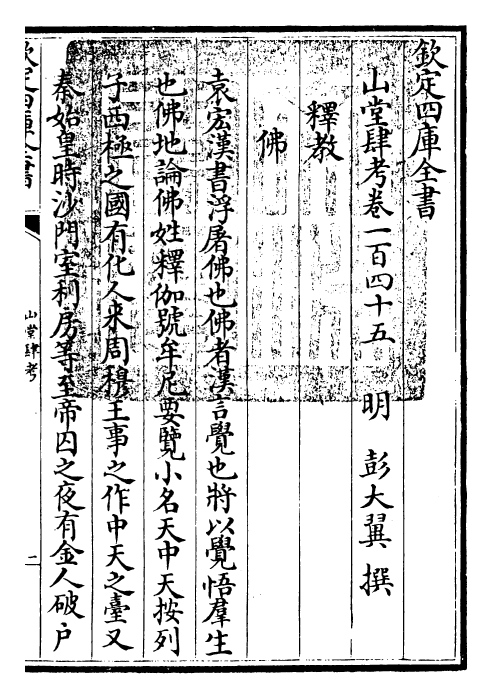 欽定四庫全書
山堂肆考卷一百四十五　明　彭大翼　撰
釋教
佛
袁宏漢書浮屠佛也佛者漢言覺也將以覺悟羣生
也佛地論佛姓釋伽號牟尼要覽小名天中天按列
子西極之國有化人來周穆王事之作中天之臺又
秦始皇時沙門室利房等至帝囚之夜有金人破户
欽定四庫全書
山堂肆考